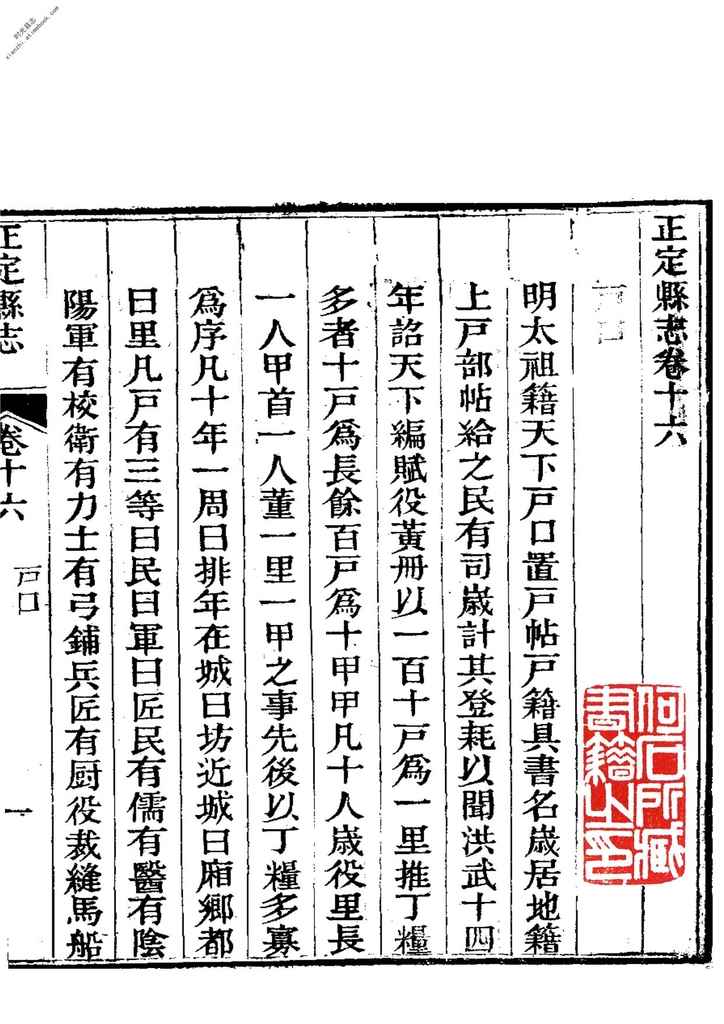 正定縣志卷十六
戶口
明太祖籍天下戶口置戶帖戶籍具書名歲居地籍
上戶部帖給之民有司歲計其登耗以聞洪武十四
年詔天下編賦役黃冊以一百十戶爲一里推丁糧
多者十戶爲長餘百戶爲十甲甲凡十人歲役里長
一人甲首一人董一里一甲之事先後以丁糧多寡
爲序凡十年一周曰排年在城曰坊近城曰廂鄉都
曰里凡戶有三等曰民曰軍曰匠民有儒有醫有陰
陽軍有校衛有力士有弓鋪兵匠有厨役裁縫馬船
正定縣志
卷十六
戶口
一
何石所臧
書籍之印
时光县志
xianzhi.atimebook.com